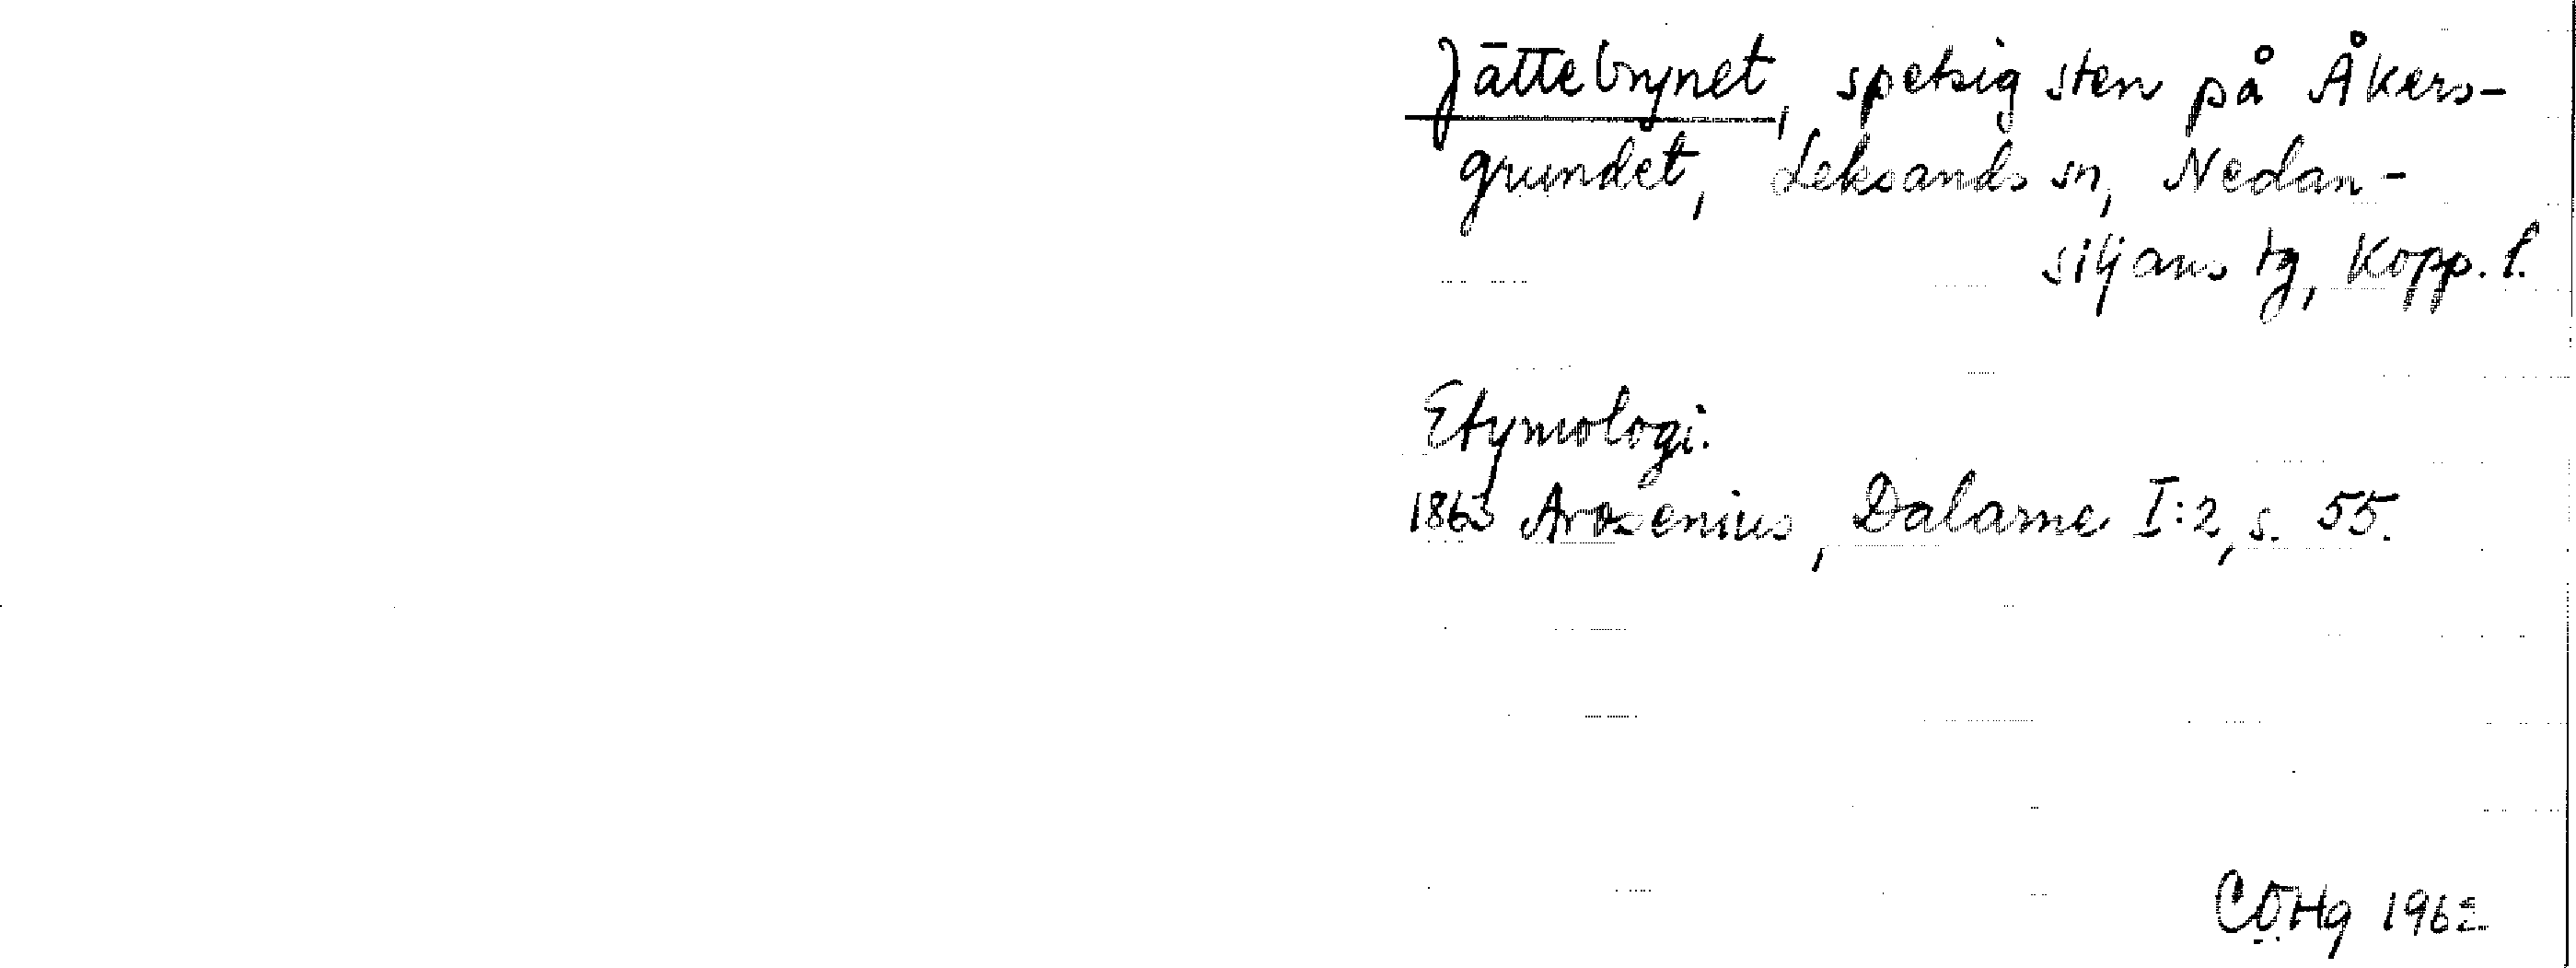 Jättebrynet, spetsig sten på Åkers-
grundet, Leksands sn, Nedan-
siljans tg, Kopp. l.
Etymologi.
1863 Arosenius, Dalarne I:2, s. 55.
CÖHg 1962